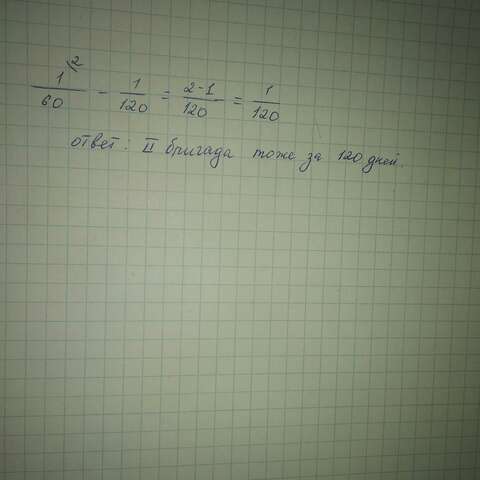 1\2/60 - 1/120 = 2-1/120 = 1/120
ответ: II бригада тоже за 120 дней.